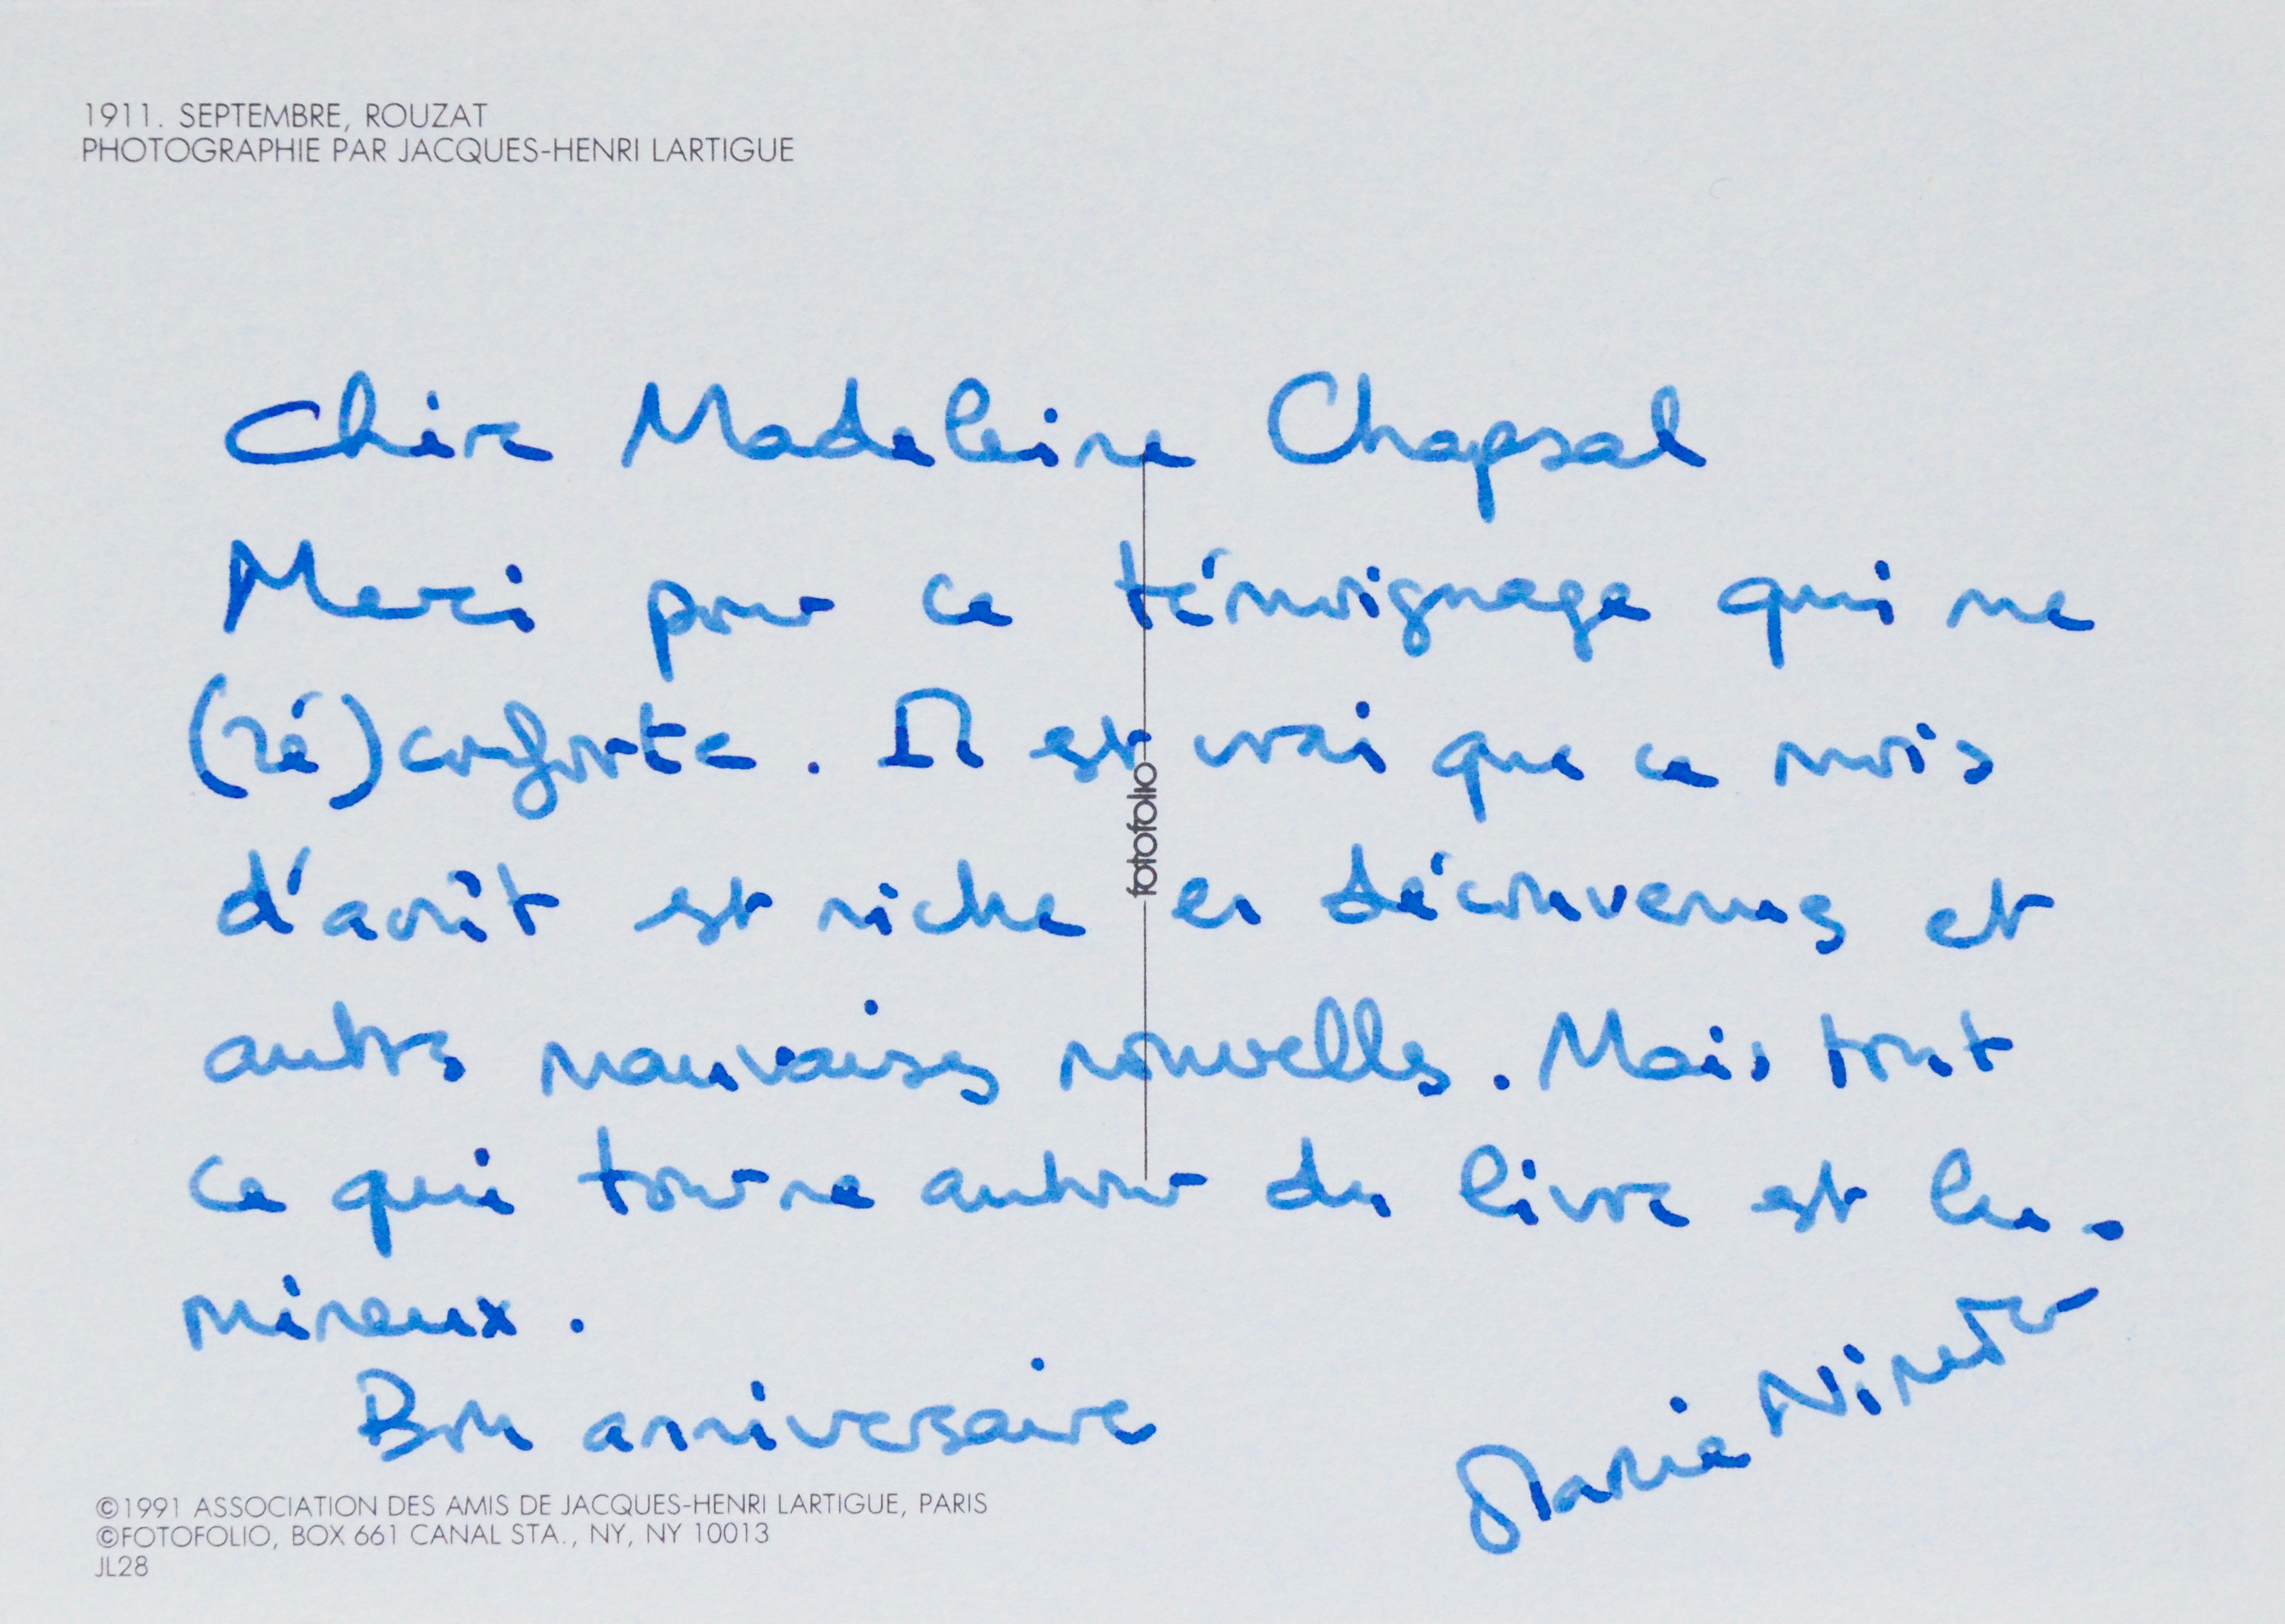 1911. SEPTEMBRE, ROUZAT
PHOTOGRAPHIE PAR JACQUES-HENRI LARTIGUE
Chère Madeleine Chapsal
Merci pour ce témoignage qui me
(ré)conforte. Il est vrai que ce mois
d'août est riche en déconvenues et
autres mauvaises nouvelles. Mais tout
ce qui tourne autour du livre est lu-
mineux.
Bon anniversaire
Marie Nimier
fotofolio
©1991 ASSOCIATION DES AMIS DE JACQUES-HENRI LARTIGUE, PARIS
©FOTOFOLIO, BOX 661 CANAL STA., NY, NY 10013
JL28